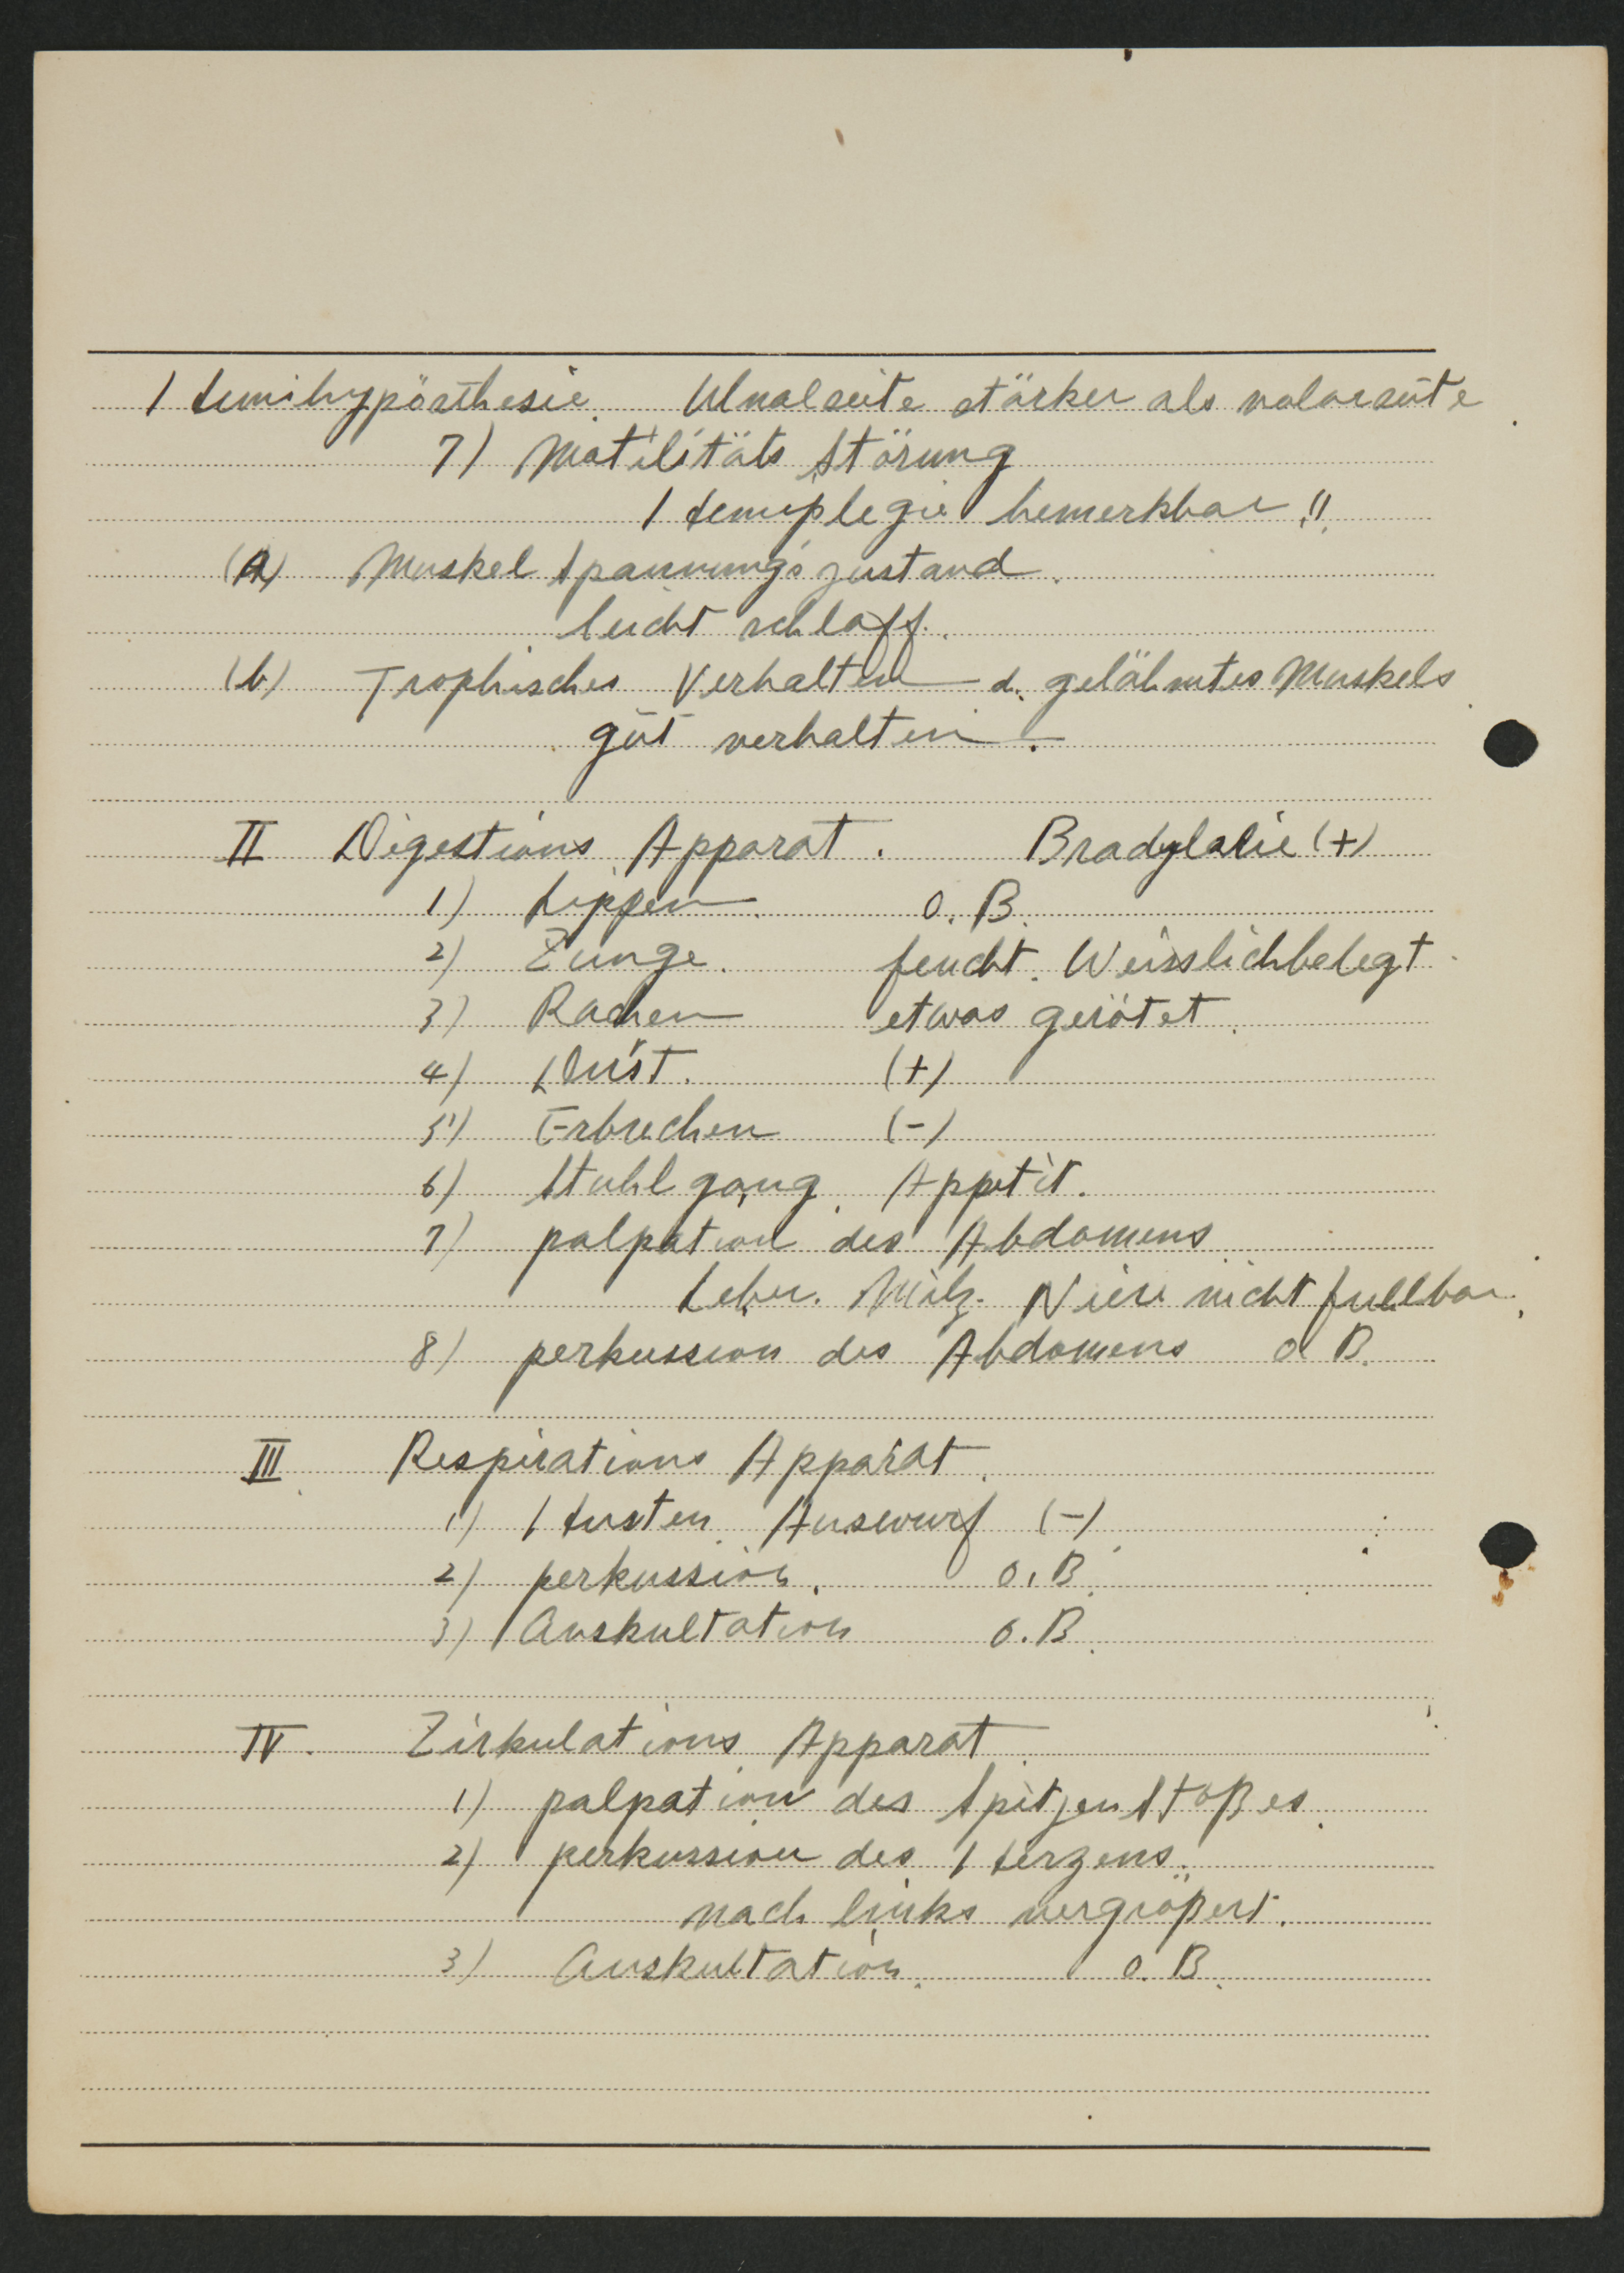 Hemihypästhesie. Ulnalseite stärker als volarseite
7) Motilitäts Störung
Hemiplegie bemerkbar !!
(a) Muskel Spannungszustand.
leicht schlaff.
(b) Trophisches Verhalten d. gelähmtes Muskels
gūt verhalten.
II Digestions Apparat. Bradylalie (+)
1) Lippen. O.B.
2) Zunge. feucht. Weisslichbelegt
3) Rachen etwas gerötet.
4) Durst. (+)
5) Erbrechen (-)
6) Stuhlgang, Appetit.
7) palpation des Abdomens
Leber. Milz. Niere nicht fullbar.
8) perkussion des Abdomens o B.
III Respirations Apparat.
1) Husten. Auswurf (-)
2) perkussion. O.B.
3) Auskultation O.B.
IV. Zirkulations Apparat.
1) palpation des Spitzen Stoßes.
2) perkussion des Herzens.
nach links vergrößert.
3) Auskultation. O.B.